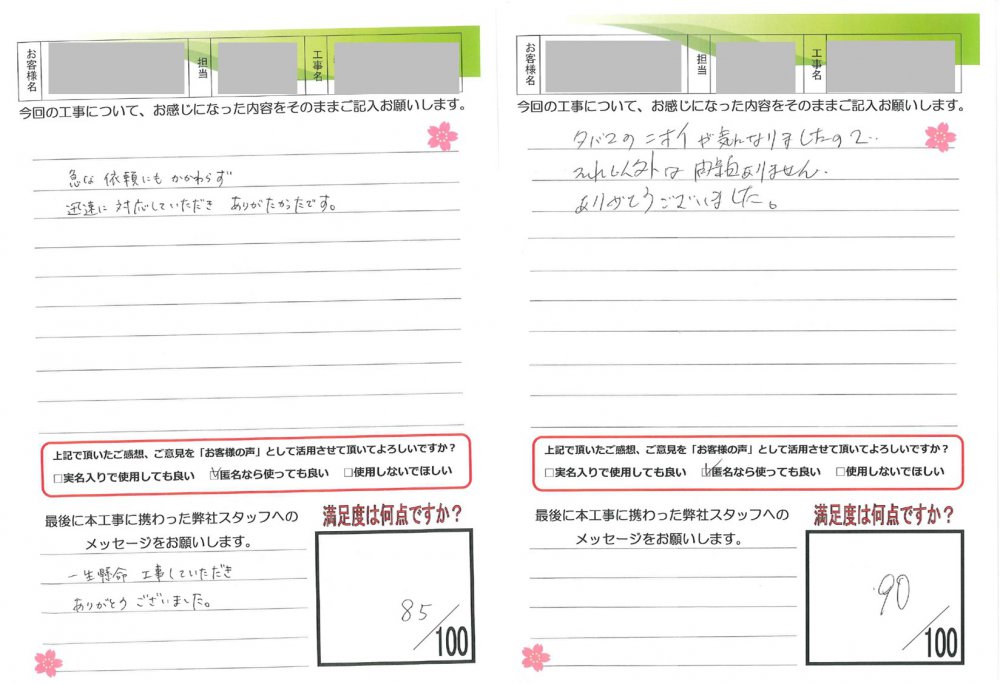 お客様名
担当
工事名
今回の工事について、お感じになった内容をそのままご記入お願いします。
急な依頼にもかかわらず
迅速に対応していただき ありがたかったです。
上記で頂いたご感想、ご意見を「お客様の声」として活用させて頂いてよろしいですか？
□実名入りで使用しても良い ☑匿名なら使っても良い □使用しないでほしい
最後に本工事に携わった弊社スタッフへの
メッセージをお願いします。
一生懸命 工事していただき
ありがとうございました。
満足度は何点ですか？
85/100
お客様名
担当
工事名
今回の工事について、お感じになった内容をそのままご記入お願いします。
タバコのニオイが気になりましたので‥
それ以外は問題ありません.
ありがとうございました。
上記で頂いたご感想、ご意見を「お客様の声」として活用させて頂いてよろしいですか？
□実名入りで使用しても良い ☑匿名なら使っても良い □使用しないでほしい
最後に本工事に携わった弊社スタッフへの
メッセージをお願いします。
満足度は何点ですか？
90/100